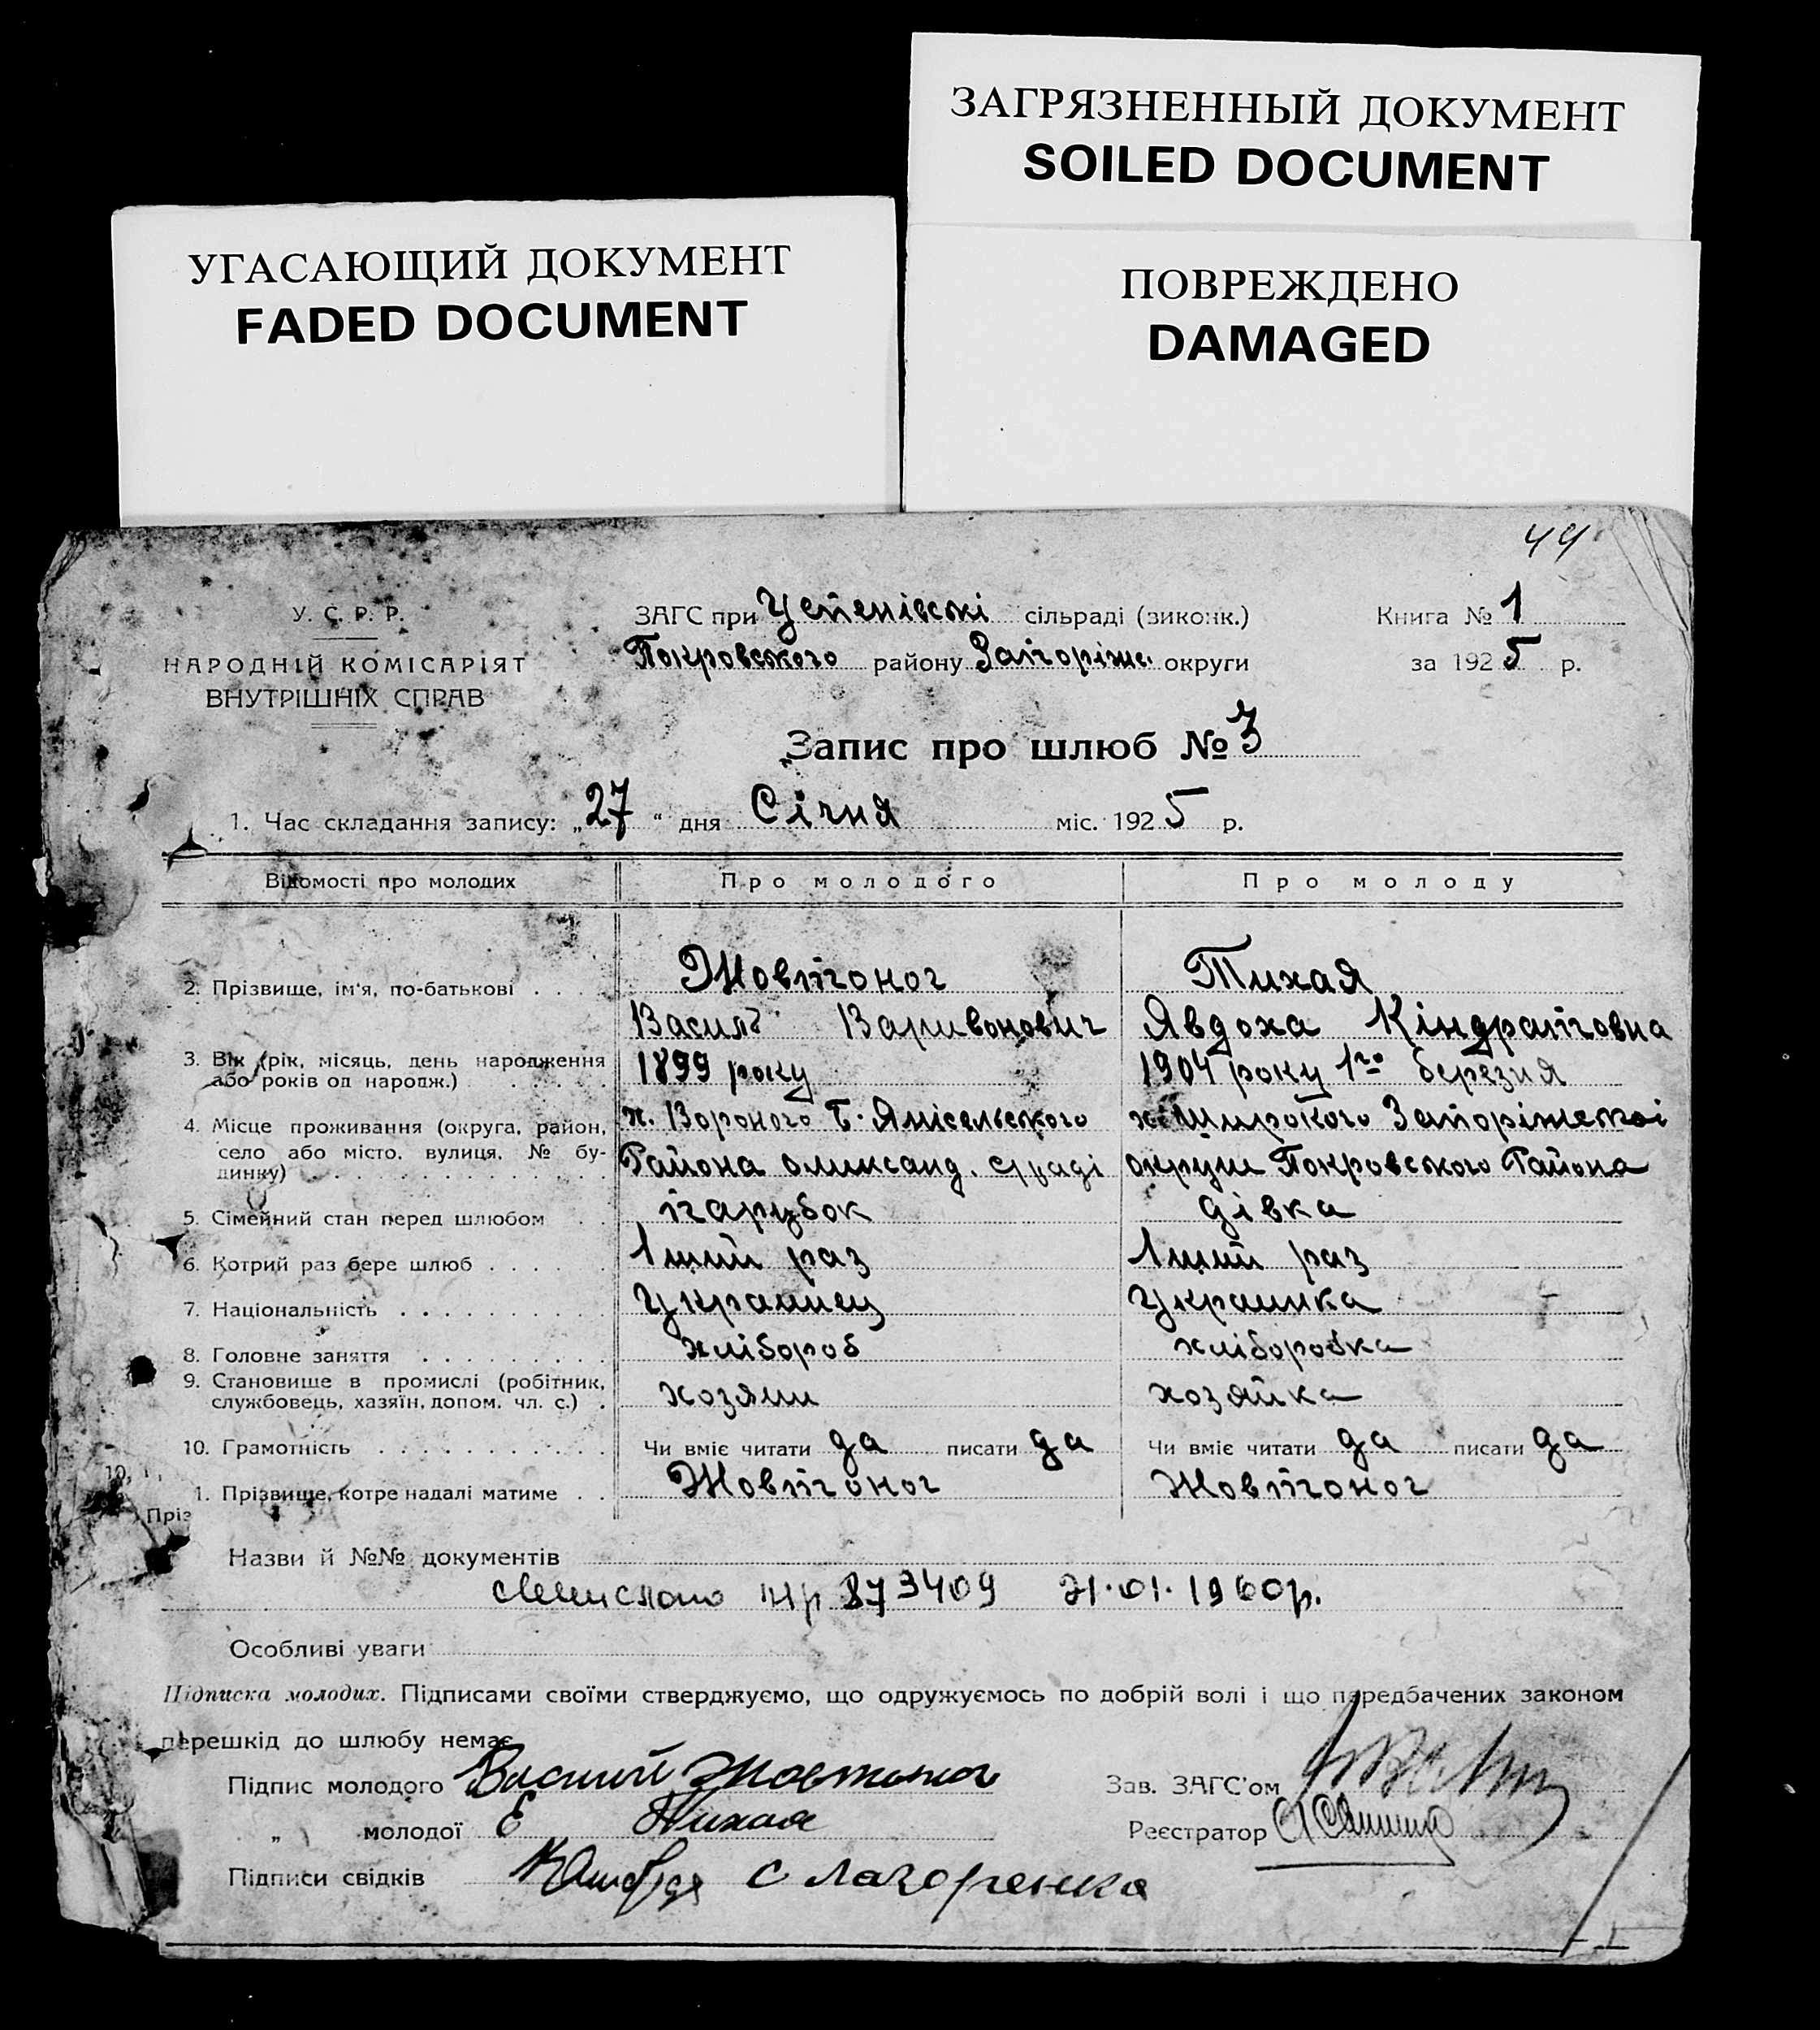 ЗАГРЯЗНЕННЫЙ ДОКУМЕНТ
SOILED DOCUMENT
УГАСАЮЩИЙ ДОКУМЕНТ
FADED DOCUMENT
ПОВРЕЖДЕНО
DAMAGED
У. С. Р. Р.
НАРОДНІЙ КОМІСАРІЯТ
ВНУТРІШНІХ СПРАВ
ЗАГС при Успенівскі сільраді (виконк.)
Покровського району Запоріжс. округи
Книга № 1
за 1925 р.
Запис про шлюб № 3
1. Час складання запису: „27“ дня Січня міс. 1925 р.
Відомості про молодих Про молодого Про молоду
2. Прізвище, ім'я, по-батькові Жовтоног Тихая
Василь Варивонович Явдоха Кіндратовна
3. Вік (рік, місяць, день народження або років од народж.) 1899 року 1904 року 1го березня
4. Місце проживання (округа, район, село або місто, вулиця, № будинку) х. Вороного Б. Янісельського х. Широкого Запоріжської
Района олександ. округи Покровського Района
5. Сімейний стан перед шлюбом парубок дівка
6. Котрий раз бере шлюб 1ший раз 1ший раз
7. Національність Украинец Украинка
8. Головне заняття хлібороб хліборобка
9. Становище в промислі (робітник, службовець, хазяїн, допом. чл. с.) хозяин хозяйка
10. Грамотність Чи вміє читати да писати да Чи вміє читати да писати да
1. Прізвище, котре надалі матиме Жовтоног Жовтоног
Пріз
Назви й №№ документів
873409 21.01.1960р.
Особливі уваги
Підписка молодих. Підписами своїми стверджуємо, що одружуємось по добрій волі і що передбачених законом
перешкід до шлюбу немає
Підпис молодого Василий Жовтоног Зав. ЗАГС'ом
„ молодої Е Тихая Реєстратор
Підписи свідків С Лагоренка